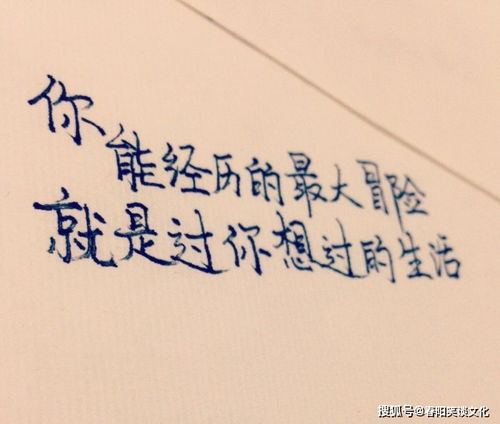 你能经历的最大冒险
就是过你想过的生活
搜狐号@春阳笑谈文化